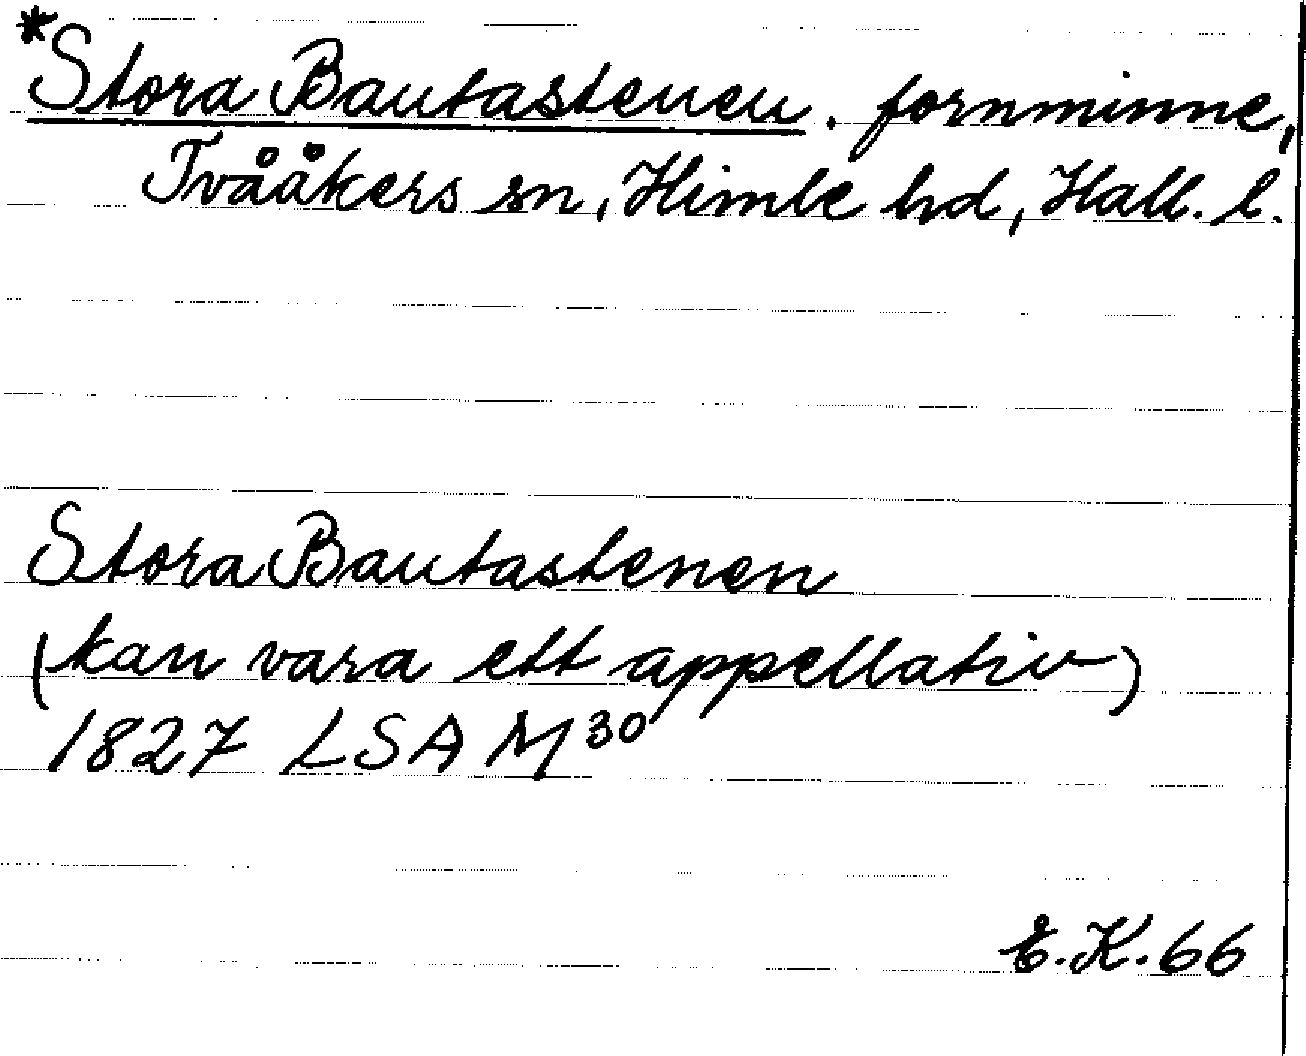 *Stora Bautastenen. fornminne,
Tvååkers sn, Himle hd, Hall. l.
Stora Bautastenen
(kan vara ett appellativ)
1827 LSA M30
E.K.66